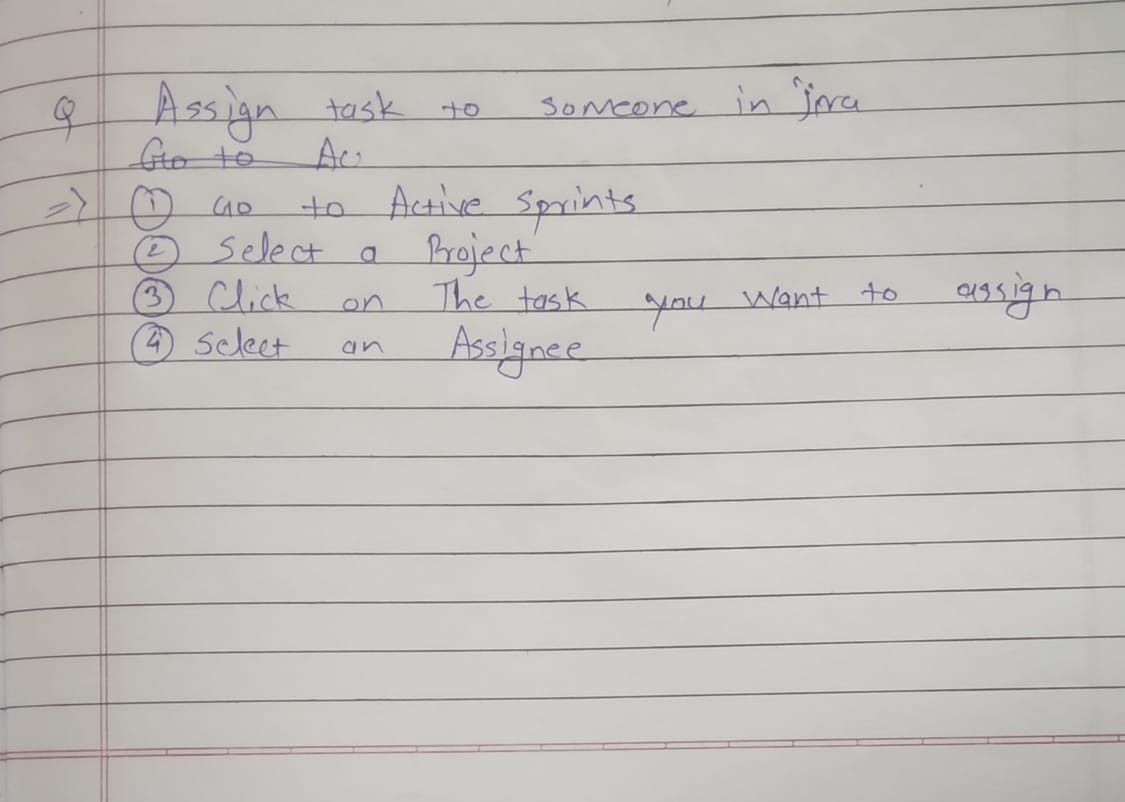 Q Assign task to someone in jira
Go to Ac
=> ① Go to Active Sprints
② Select a Project
③ Click on The task you want to assign
④ Select an Assignee